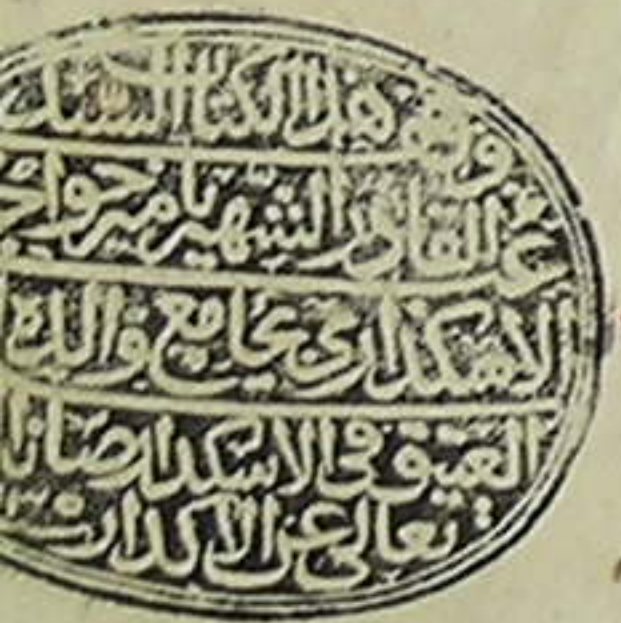 وقف هذا الكتاب السيد
عبد القادر الشهير بامير خواجه
الاسكداري بجامع والده
العتيق في الاسكدار صانها
تعالى عن الاكدار